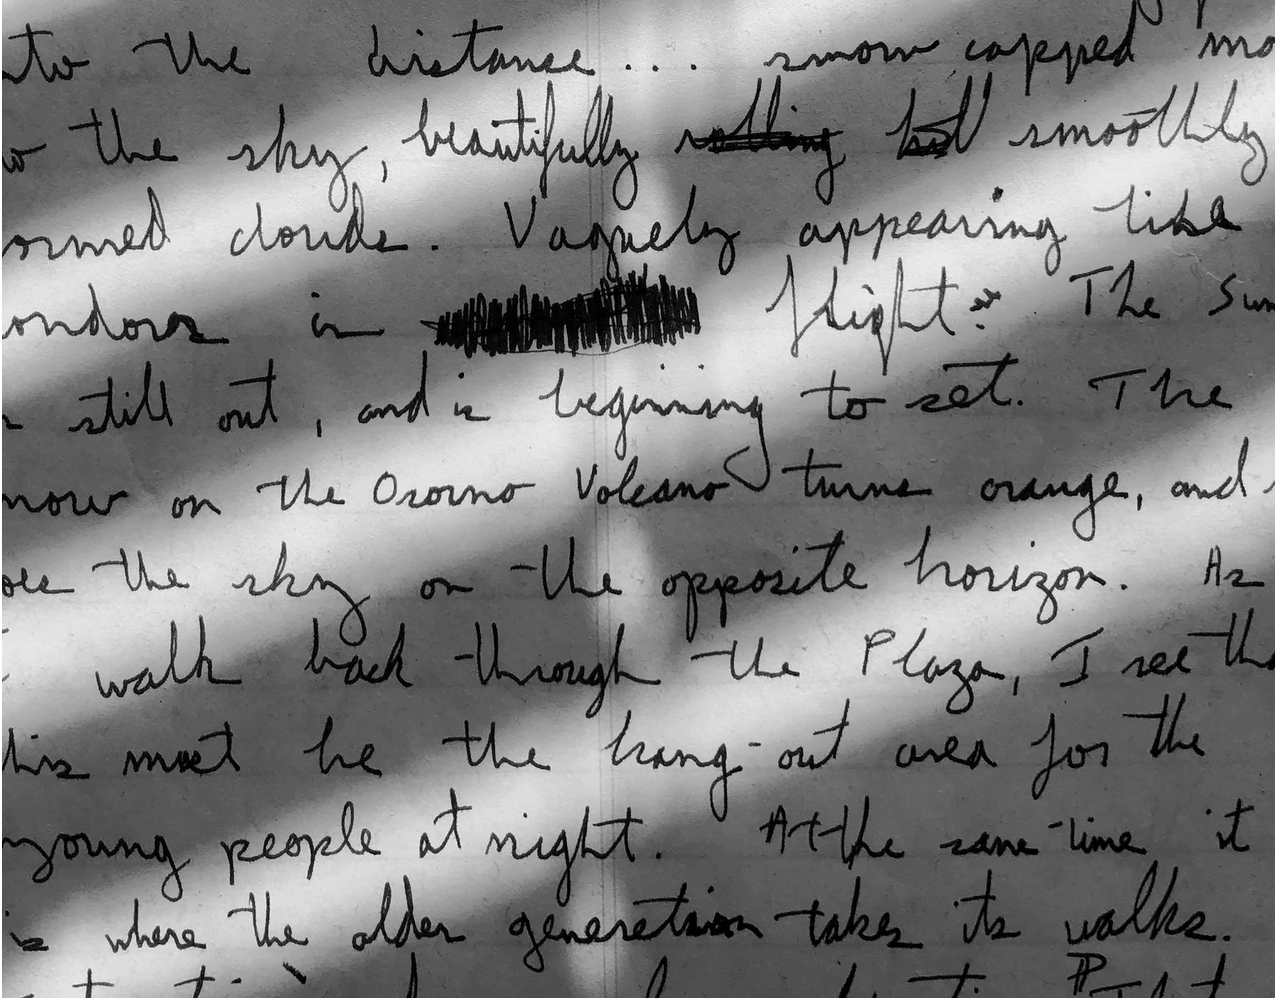 into the distance... snow capped mo
w the sky, beautifully rolling but smoothly
ormed clouds. Vaguely appearing like
ondors in flight. The Sun
is still out, and is beginning to set. The
now on the Osorno Volcano turns orange, and s
oes the sky on the opposite horizon. As
I walk back through the Plaza, I see tha
this must be the hang-out area for the
young people at night. At the same time it
is where the older generation takes its walks.